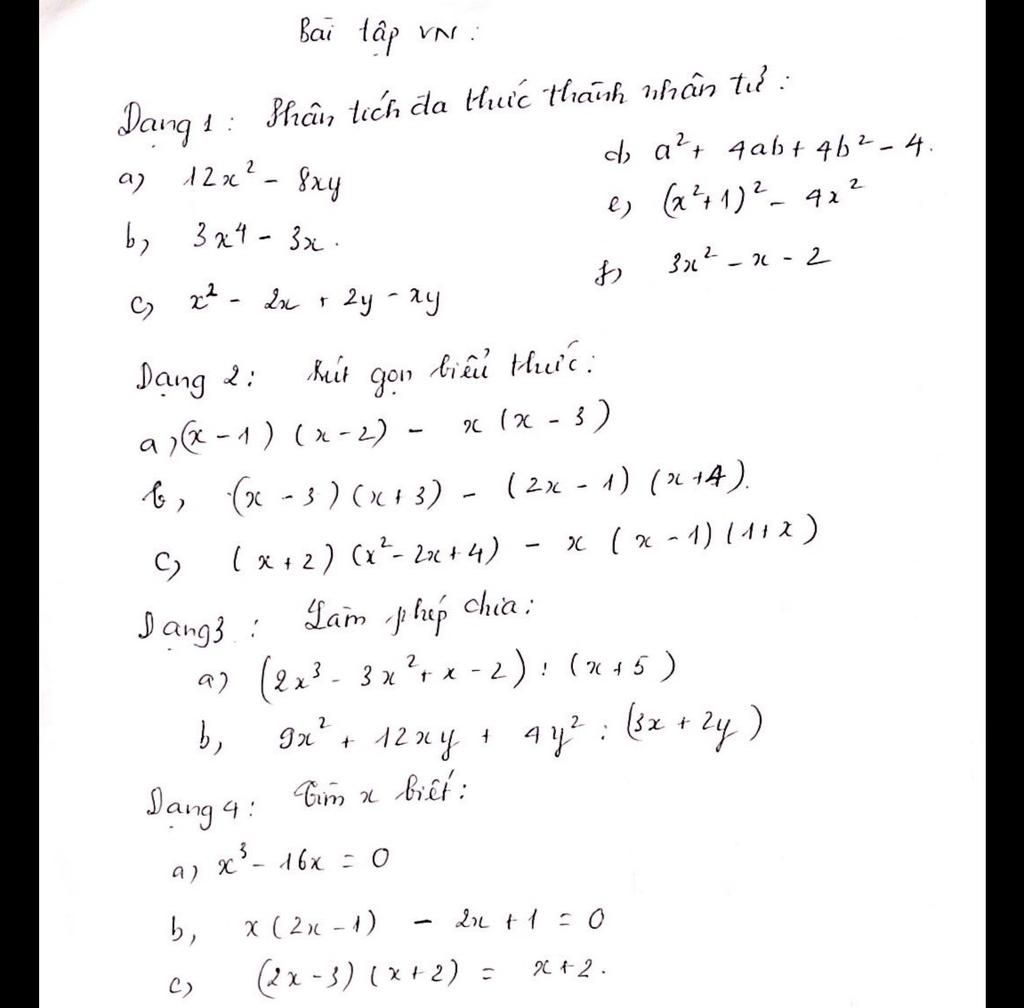 Bài tập VN:
Dạng 1: Phân tích đa thức thành nhân tử:
a) 12x² - 8xy
b) 3x⁴ - 3x.
c) x² - 2x + 2y - xy
d) a² + 4ab + 4b² - 4.
e) (x² + 1)² - 4x²
f) 3x² - x - 2
Dạng 2: Rút gọn biểu thức:
a) (x - 1) (x - 2) - x (x - 3)
b, (x - 3) (x + 3) - (2x - 1) (x + 4).
c) (x + 2) (x² - 2x + 4) - x (x - 1) (1 + x)
Dạng 3: Làm phép chia:
a) (2x³ - 3x² + x - 2) : (x + 5)
b, 9x² + 12xy + 4y² : (3x + 2y)
Dạng 4: Tìm x biết:
a) x³ - 16x = 0
b, x (2x - 1) - 2x + 1 = 0
c) (2x - 3) (x + 2) = x + 2.